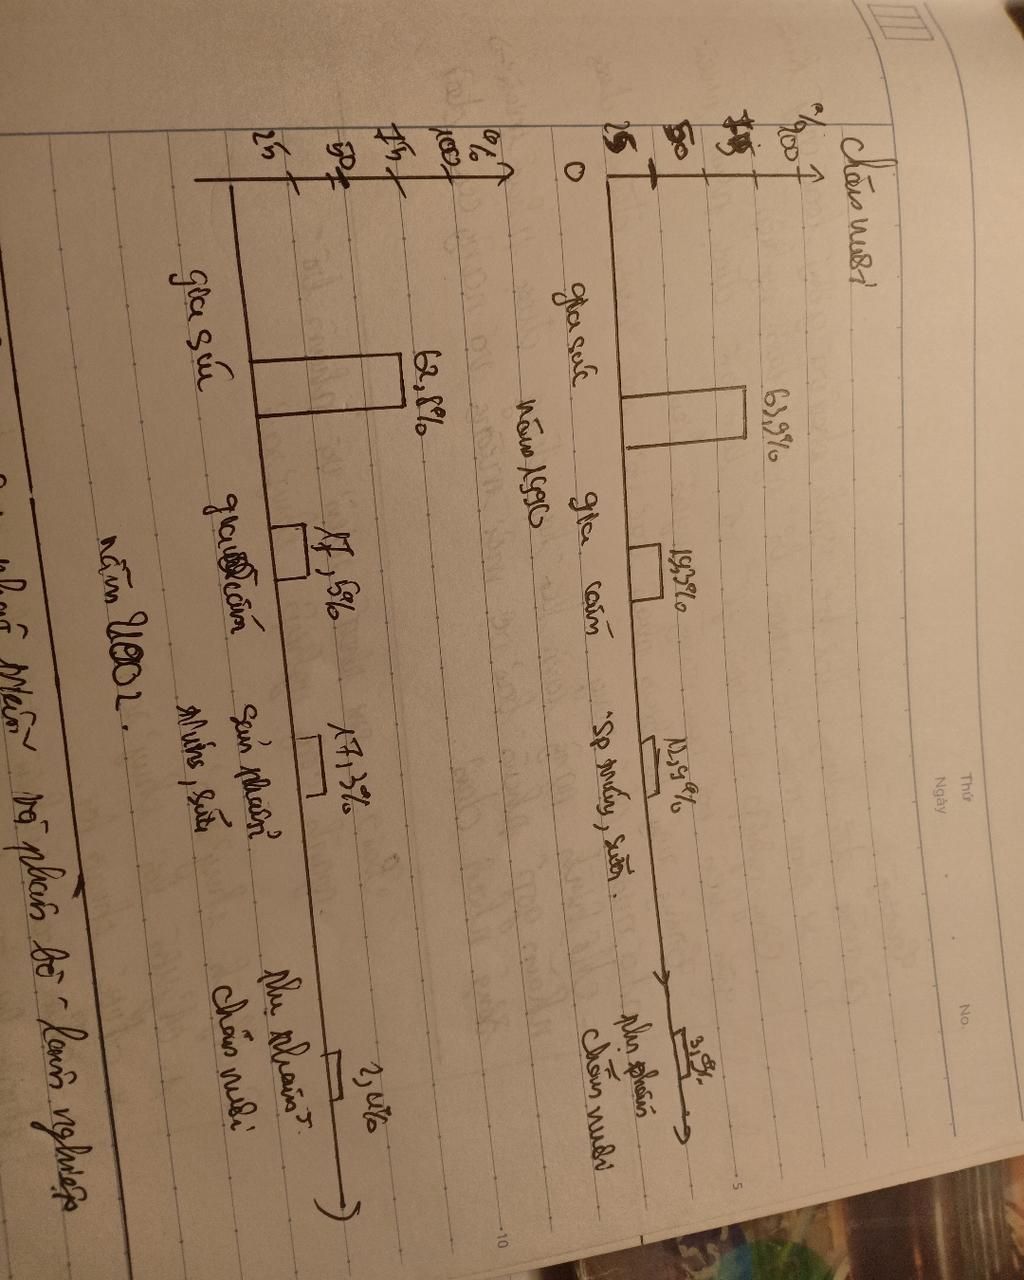 Thứ
Ngày
No.
Chăn nuôi
%
100
75
50
25
0
63,9%
19,3%
12,9%
3,9%
gia súc
gia cầm
sp trứng, sữa.
phụ phẩm
chăn nuôi
năm 1990
%
100
75
50
25
62,8%
17,5%
17,3%
2,4%
gia súc
gia cầm
sản phẩm
trứng, sữa
phụ phẩm
chăn nuôi
năm 2002.
và phân bố lâm nghiệp
5
10